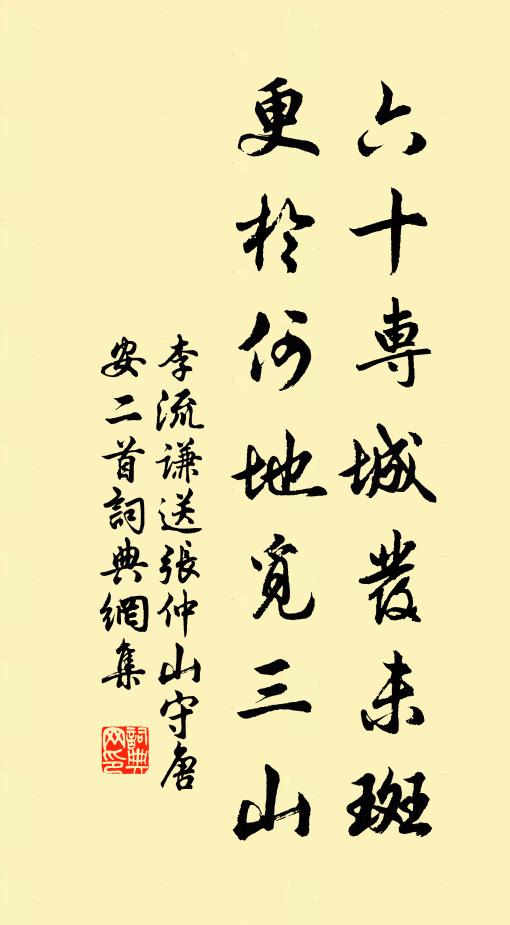 六十専城發未斑
更於何地覓三山
李流謙送張仲山守唐
安二首詞典網集
詞典
网印